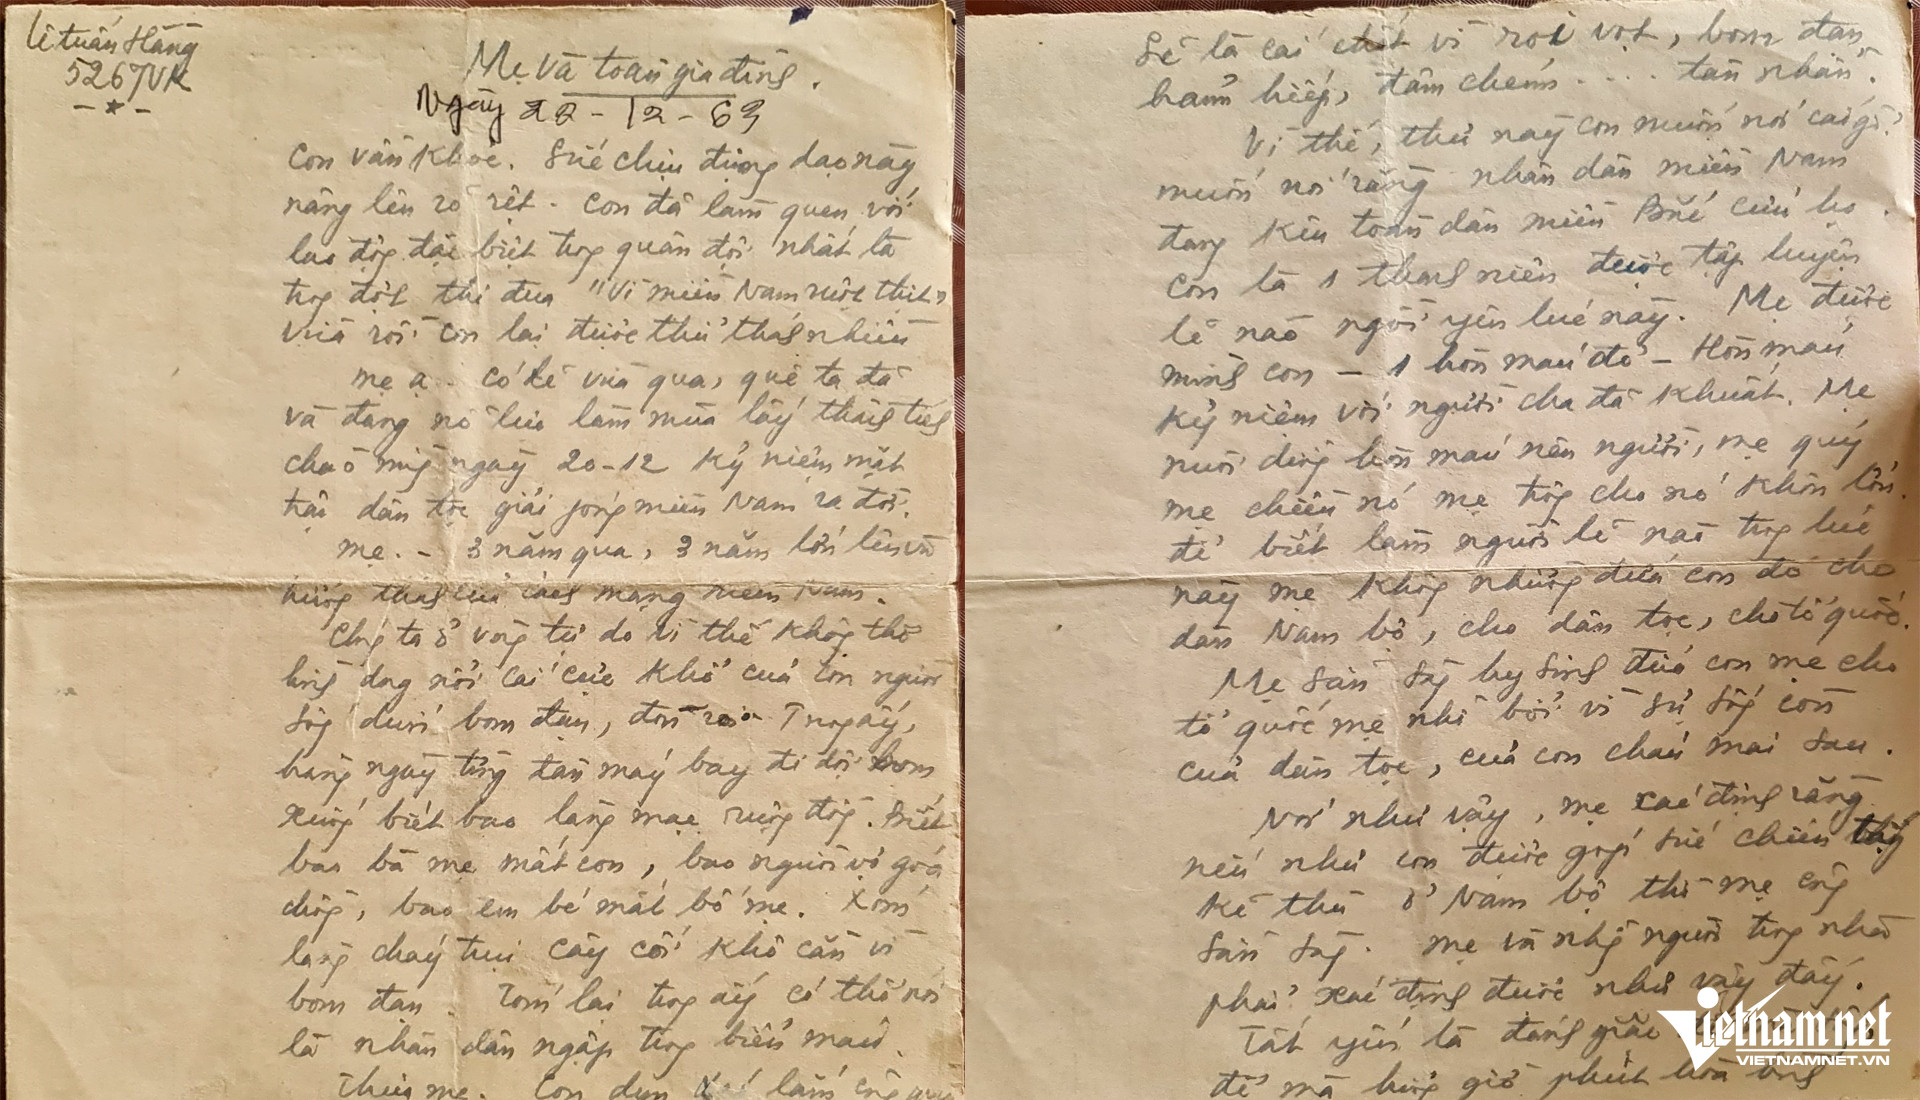 Lê tuấn Hãng
5267VK
Mẹ và toàn gia đình.
Ngày 22-12-63
Con vẫn khỏe. Sức chịu đựng dạo này
nâng lên rõ rệt. Con đã làm quen với
lao độg đặc biệt trog quân đội nhất là
trog đợt thi đua "Vì miền Nam ruột thịt"
vừa rồi con lại được thử thák nhiều
mẹ ạ. Có lẽ vừa qua, quê ta đã
và đang nỗ lực làm mùa lấy thành tích
chào mừg ngày 20-12 kỷ niệm mặt
trận dân tộc giải fóng miền Nam ra đời.
Mẹ. - 3 năm qua, 3 năm lớn lên và
của cách mạng miền Nam.
Chúg ta ở vùng tự do vì thế không thể
hình dung nổi cái cực khổ của con người
sốg dưới bom đạn, đòn roi. Trog ấy,
hàng ngày từg đàn máy bay đi dội bom
xuốg biết bao làng mạc ruộg đồg. Biết
bao bà mẹ mất con, bao người vợ góa
chồg, bao em bé mất bố mẹ. Xóm
làng cháy trụi cây cối khô cằn vì
bom đạn. Tóm lại trog ấy có thể nói
là nhân dân ngập trog biển máu.
Thưa mẹ. Con
Sẽ là cái chết vì roi vọt, bom đạn
hãm hiếp, đâm chém .... tàn nhẫn.
Vì thế, thư này con muốn nói cái gì?
muốn nói rằng nhân dân miền Nam
đang kêu toàn dân miền Bắc cứu họ.
Con là 1 thanh niên được tập luyện
lẽ nào ngồi yên lúc này. Mẹ được
mình con - 1 hòn máu đỏ - Hòn máu
kỷ niệm với người cha đã khuất. Mẹ
nuôi dưỡng hòn máu nên người, mẹ quý
mẹ chiều nó mẹ trôg cho nó khôn lớn.
để biết làm người lẽ nào trog lúc
này mẹ khôg nhườg đứa con đó cho
dân Nam bộ, cho dân tộc, cho tổ quốc.
Mẹ sẵn sàg hy sinh đứa con mẹ cho
tổ quốc mẹ nhỉ bởi vì sự sốg còn
của dân tộc, của con cháu mai sau.
Nói như vậy, mẹ xác định rằng
nếu như con được góp sức chiến thắg
kẻ thù ở Nam bộ thì mẹ cũg
sẵn sàg. Mẹ và nhữg người trog nhà
phải xác định được như vậy đấy.
Tất yếu là đánh giặc
để mà hưởg giờ phút hòa bình
Vietnamnet
VIETNAMNET.VN